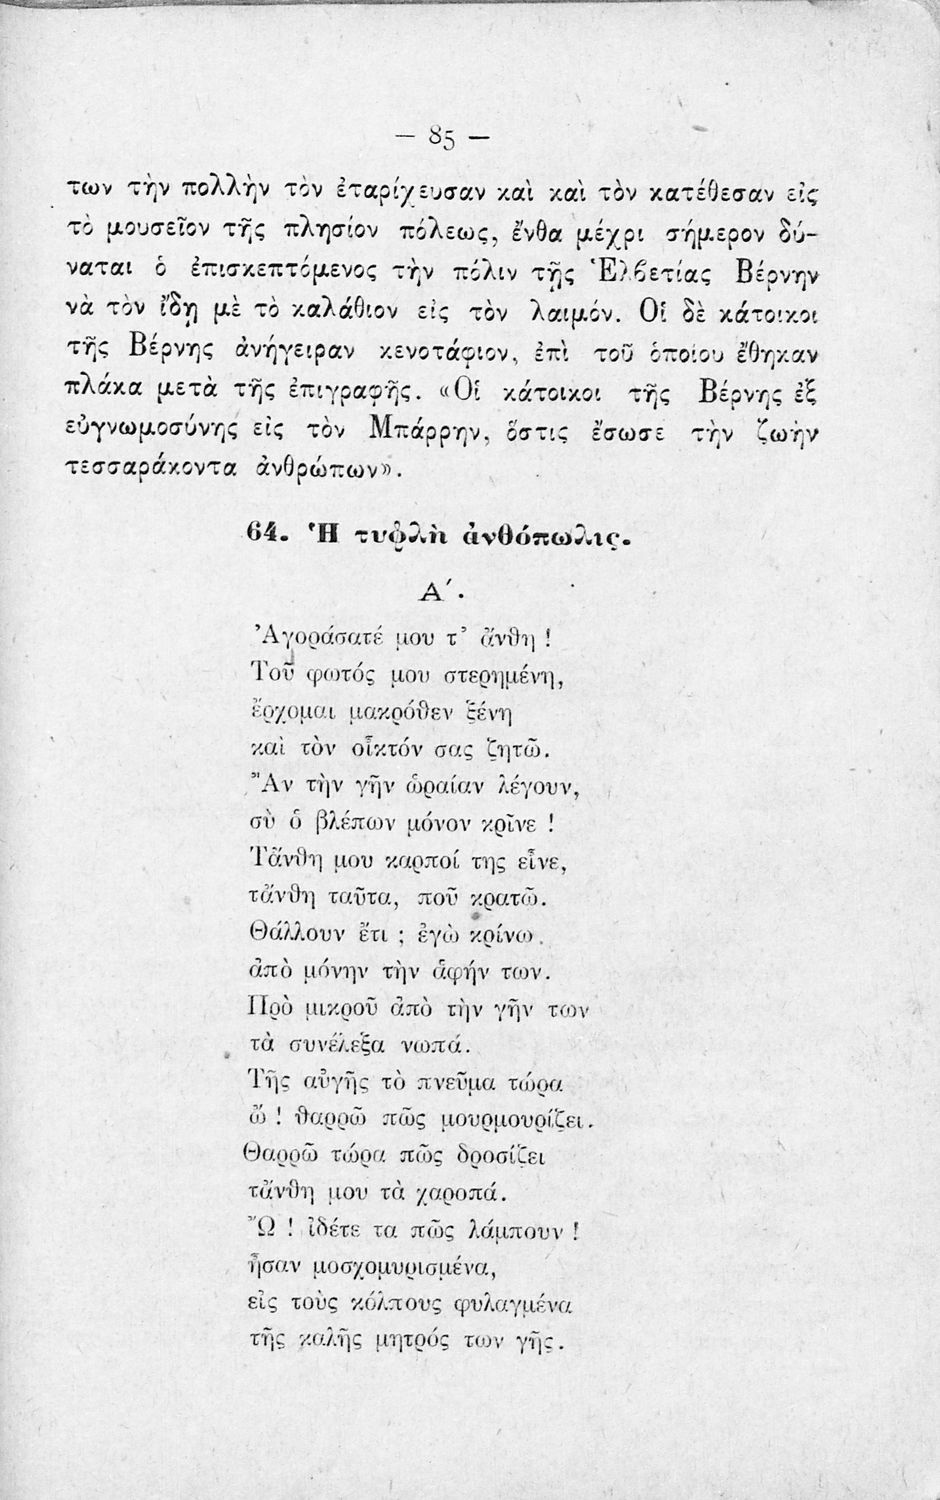 — 85 —
των τὴν πολλὴν τὸν ἐταρίχευσαν καὶ καὶ τὸν κατέθεσαν εἰς
τὸ μουσεῖον τῆς πλησίον πόλεως, ἔνθα μέχρι σήμερον δύ-
ναται ὁ ἐπισκεπτόμενος τὴν πόλιν τῆς Ἑλβετίας Βέρνην
νὰ τὸν ἴδῃ μὲ τὸ καλάθιον εἰς τὸν λαιμόν. Οἱ δὲ κάτοικοι
τῆς Βέρνης ἀνήγειραν κενοτάφιον, ἐπὶ τοῦ ὁποίου ἔθηκαν
πλάκα μετὰ τῆς ἐπιγραφῆς. «Οἱ κάτοικοι τῆς Βέρνης ἐξ
εὐγνωμοσύνης εἰς τὸν Μπάρρην, ὅστις ἔσωσε τὴν ζωὴν
τεσσαράκοντα ἀνθρώπων».
64. Ἡ τυφλὴ ἀνθόπωλις.
Α΄.
Ἀγοράσατέ μου τ' ἄνθη !
Τοῦ φωτός μου στερημένη,
ἔρχομαι μακρόθεν ξένη
καὶ τὸν οἶκτόν σας ζητῶ.
Ἂν τὴν γῆν ὡραίαν λέγουν,
σὺ ὁ βλέπων μόνον κρῖνε !
Τἄνθη μου καρποί της εἶνε,
τἄνθη ταῦτα, ποῦ κρατῶ.
Θάλλουν ἔτι ; ἐγὼ κρίνω
ἀπὸ μόνην τὴν ἁφήν των.
Πρὸ μικροῦ ἀπὸ τὴν γῆν των
τὰ συνέλεξα νωπά.
Τῆς αὐγῆς τὸ πνεῦμα τώρα
ὤ ! θαρρῶ πῶς μουρμουρίζει.
Θαρρῶ τώρα πῶς δροσίζει
τἄνθη μου τὰ χαροπά.
Ὢ ! ἰδέτε τα πῶς λάμπουν !
ἦσαν μοσχομυρισμένα,
εἰς τοὺς κόλπους φυλαγμένα
τῆς καλῆς μητρός των γῆς.